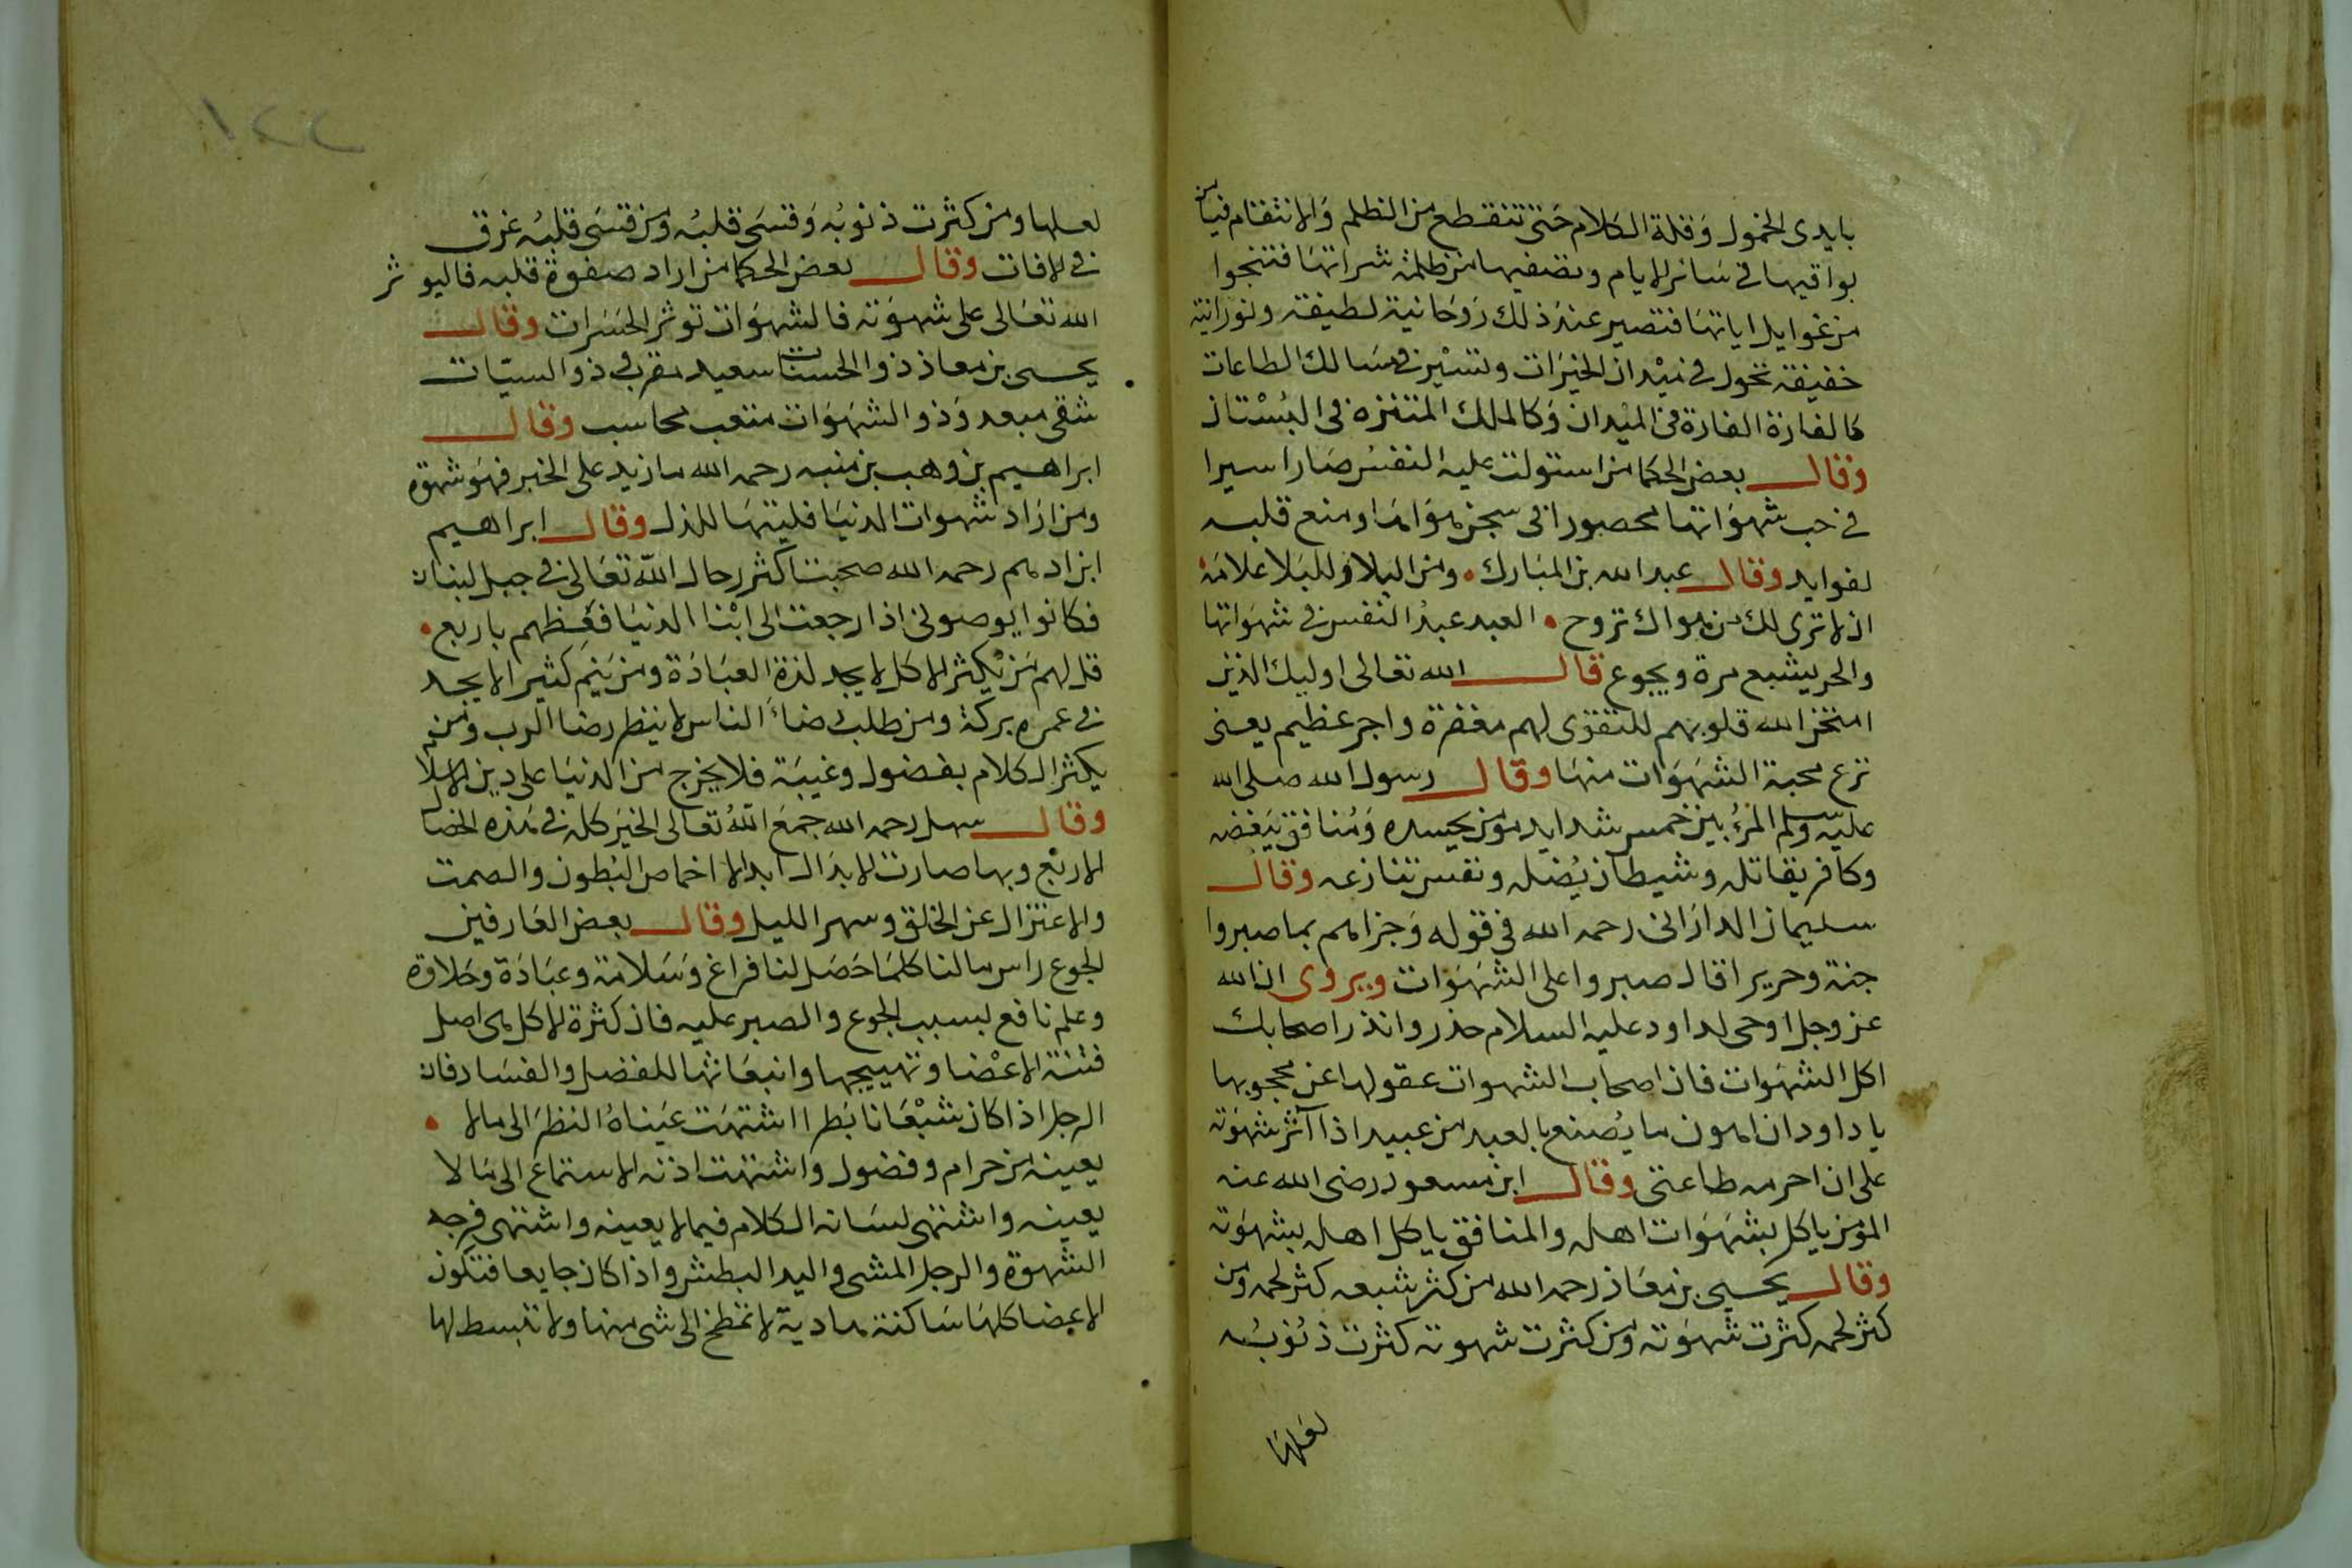 بايدى الخمول وقلة الكلام حتى تنقطع من الظلم والانتقام فيامن
بواقيها فى سائر الايام وتصفيها من ظلمة شراتها فتنجوا
من غوايل اياتها فتصير عند ذلك روحانية لطيفة ونورانية
خفيفة تجول فى ميدان الخيرات وتسير فى مسالك الطاعات
كالفارة الفارة فى الميدان وكالملك المتنزه فى البستان
وقال بعض الحكما من استولت عليه النفس صار اسيرا
فى حب شهواتها محصورا فى سجن هواها ومنع قلبه
لفوايد وقال عبد الله بن المبارك ومن البلا وللبلا علامة
ان لا ترى لك من هواك نزوح العبد عبد النفس فى شهواتها
والحر يشبع مرة ويجوع قال الله تعالى اوليك الذين
امتحن الله قلوبهم للتقوى لهم مغفرة واجر عظيم يعنى
نزع محبة الشهوات منها وقال رسول الله صلى الله
عليه وسلم المرء بين خمس شدايد مومن يحسده ومنافق يبغضه
وكافر يقاتله وشيطان يضله ونفس تنازعه وقال
سليمان الدارانى رحمه الله فى قوله وجزاهم بما صبروا
جنة وحريرا قال صبروا على الشهوات ويروى ان الله
عز وجل اوحى لداود عليه السلام حذر وانذر اصحابك
اكل الشهوات فان اصحاب الشهوات عقولها عنى محجوبها
يا داود ان اهون ما يصنع بالعبد من عبيد اذا آثر شهوته
على ان احرمه طاعتى وقال ابن مسعود رضى الله عنه
المومن ياكل بشهوات اهله والمنافق ياكل اهله بشهوته
وقال يحيى بن معاذ رحمه الله من كثر شبعه كثر لحمه ومن
كثر لحمه كثرت شهوته ومن كثرت شهوته كثرت ذنوبه
لعلها
١٢٢
لعلها ومن كثرت ذنوبه وقسى قلبه ومن قسى قلبه غرق
فى الافات وقال بعض الحكما من اراد صفوة قلبه فاليوثر
الله تعالى على شهوته فالشهوات توثر الحسرات وقال
يحيى بن معاذ ذوا الحسنات سعيد مقرب فى ذو السيات
شقى مبعد وذو الشهوات متعب محاسب وقال
ابراهيم بن وهب بن منبه رحمه الله ما زيد على الخبز فهو شهوة
ومن اراد شهوات الدنيا فليتهيا للذل وقال ابراهيم
ابن ادهم رحمه الله صحبت اكثر رجال الله تعالى فى جبل لبنان
فكانوا يوصونى اذا رجعت الى ابنا الدنيا فعظهم باربع
قل لهم من يكثر الاكل لا يجد لذة العبادة ومن ينم كثيرا لا يجد
فى عمره بركة ومن طلب رضاء الناس لا ينتظر رضا الرب ومن
يكثر الكلام بفضول وغيبة فلا يخرج من الدنيا على دين الاسلام
وقال سهل رحمه الله جمع الله تعالى الخير كله فى هذه الخصال
الاربع وبها صارت الابدال ابدالا اخماص البطون والصمت
والاعتزال عن الخلق وسهر الليل وقال بعض العارفين
الجوع راس مالنا كلما حصل لنا فراغ وسلامة وعبادة وحلاوة
وعلم نافع بسبب الجوع والصبر عليه فان كثرة الاكل هى اصل
فتنة الاعضا وتهييجها وانبعاثها للفضل والفساد فان
الرجل اذا كان شبعانا بطرا اشتهت عيناه النظر الى مالا
يعينه من حرام وفضول واشتهت اذنه الاستماع الى ما لا
يعينه واشتهى لسانه الكلام فيما لا يعينه واشتهى فرجه
الشهوة والرجل المشى واليد البطش واذا كان جايعا فتكون
الاعضا كلها ساكنة هادية لا تطمح الى شى منها ولا تبسط لها